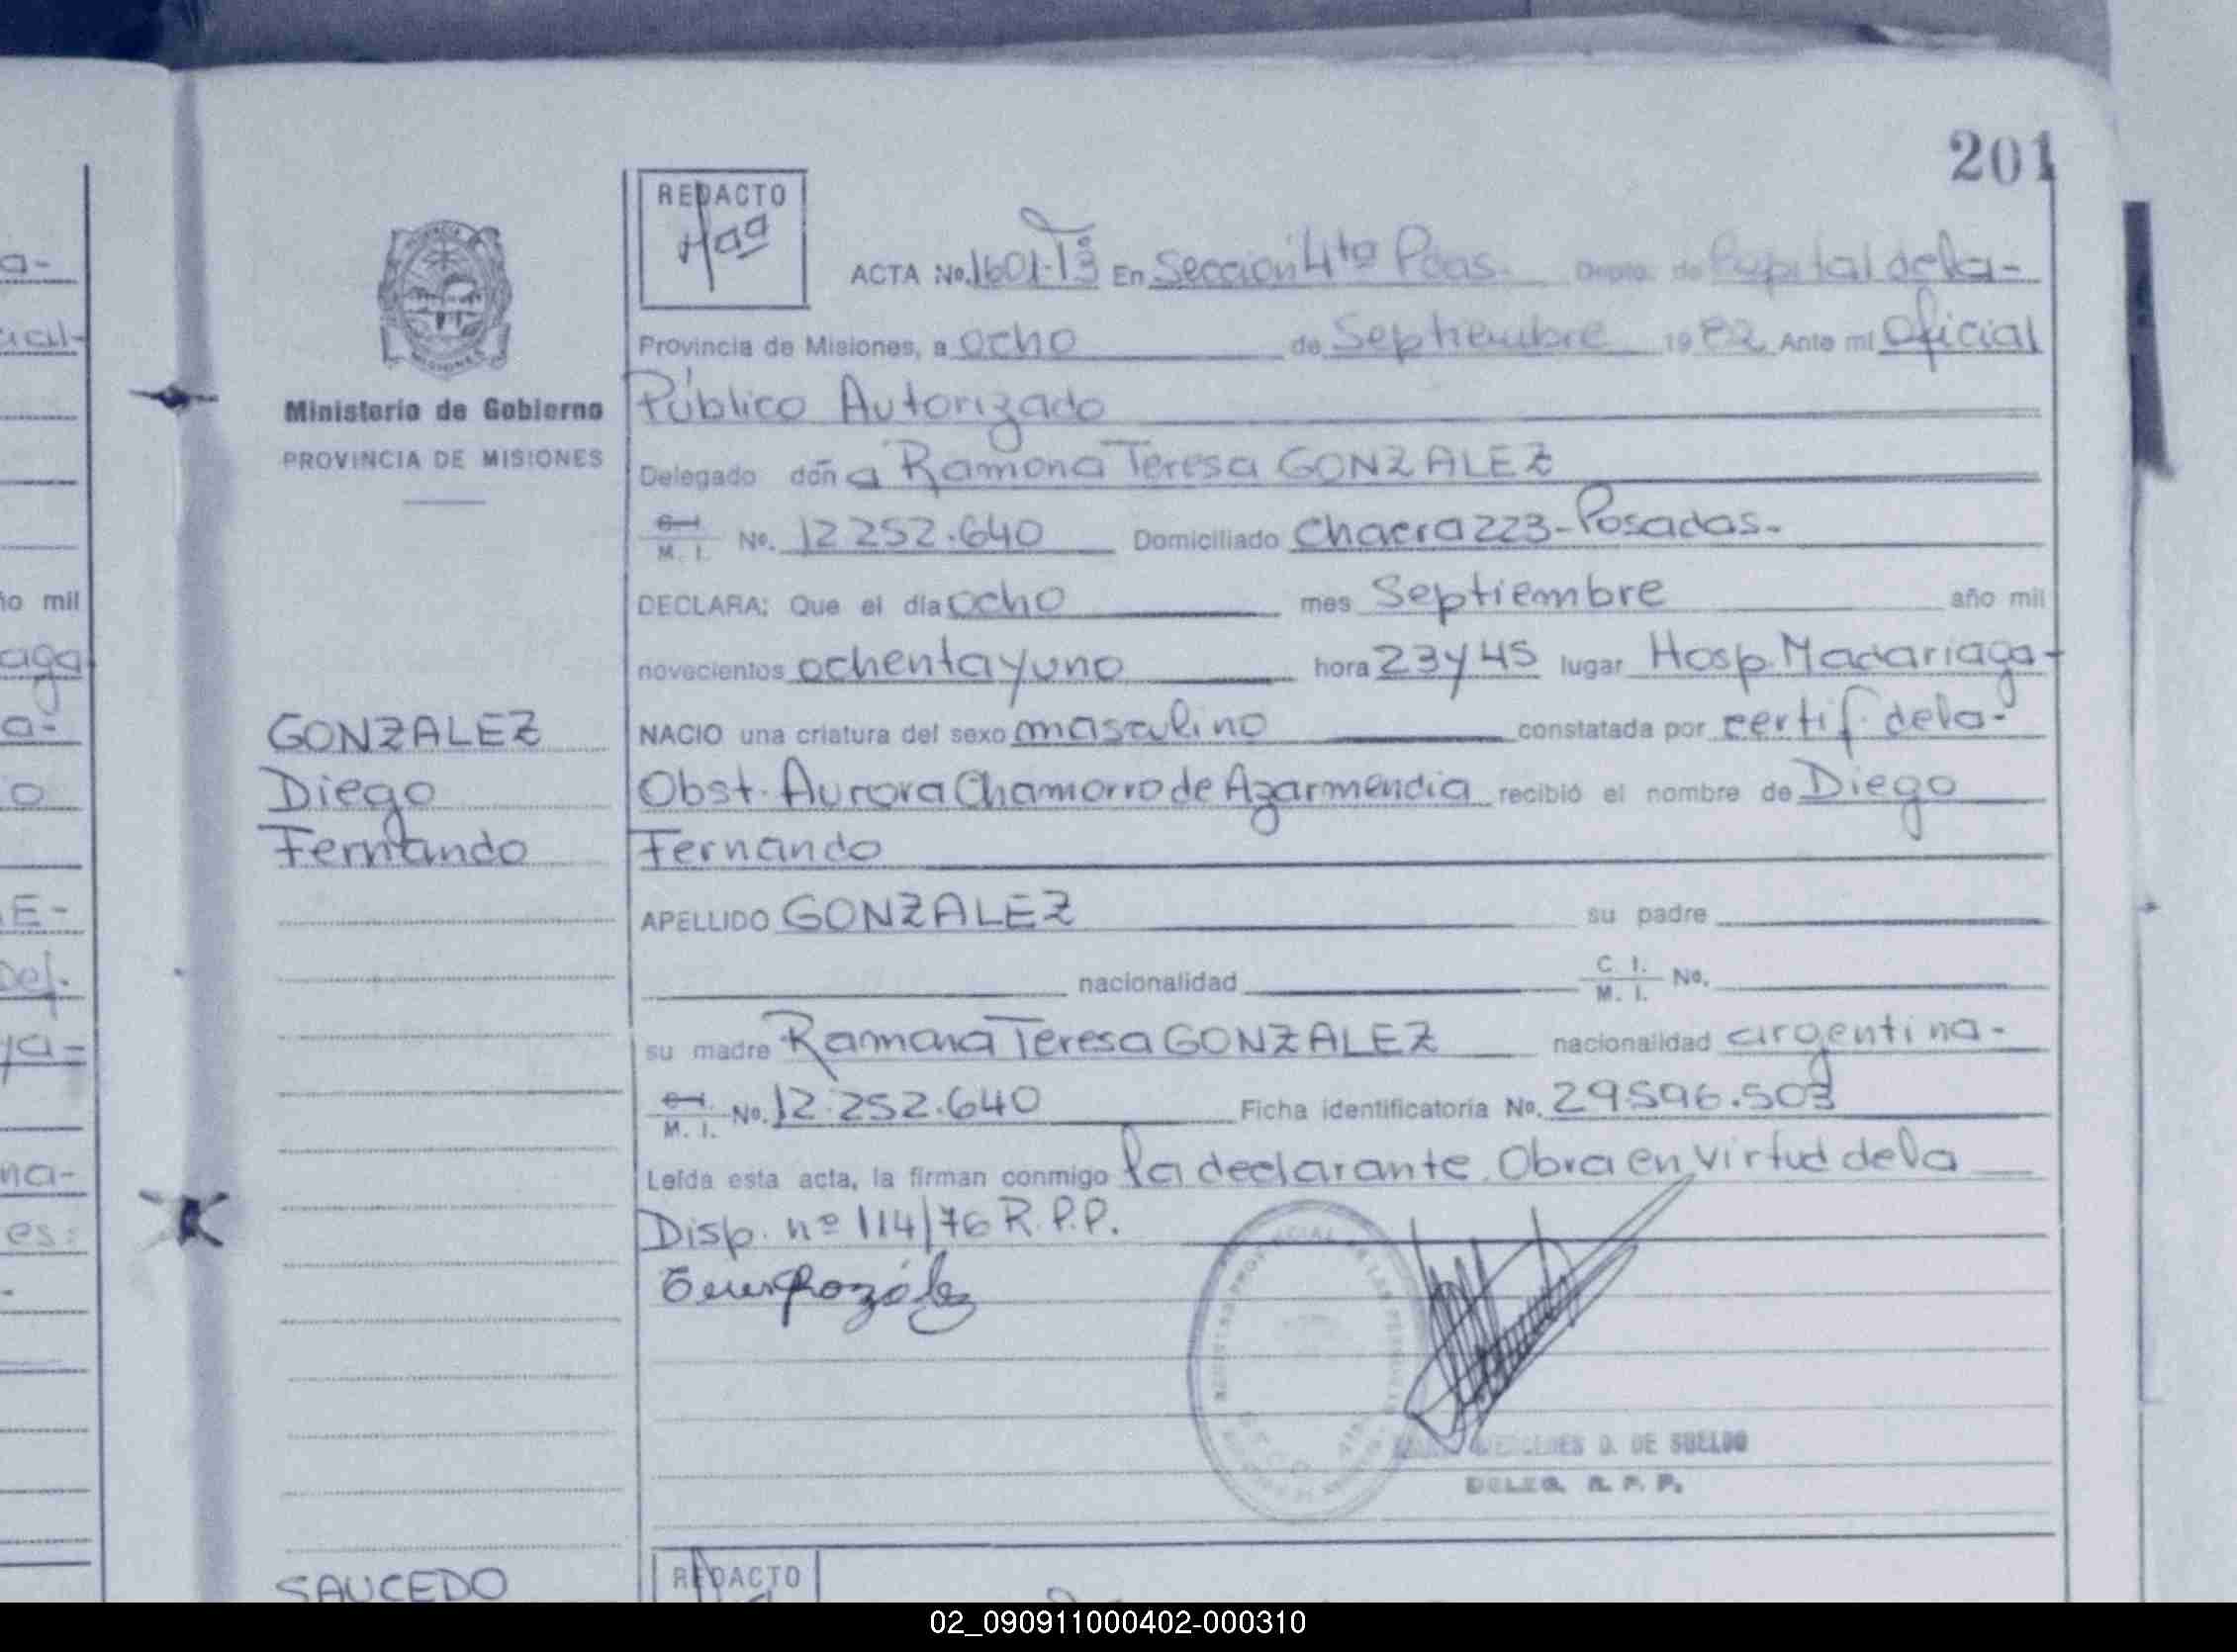 201
REDACTO
ACTA No. 1601-Tº3 En Sección 4ta Pdas. Depto. de Capital de la-
Provincia de Misiones, a ocho de Septiembre 1982 Ante mi Oficial
Ministerio de Gobierno
Público Autorizado
PROVINCIA DE MISIONES
Delegado doña Ramona Teresa GONZALEZ
C. I. M. I. No. 12 252.640 Domiciliado Chacra 223-Posadas-
DECLARA: Que el día ocho mes Septiembre año mil
novecientos ochenta y uno hora 23 y 45 lugar Hosp. Madariaga-
GONZALEZ
NACIO una criatura del sexo masculino constatada por certif. de la-
Diego
Obst. Aurora Chamorro de Azarmendia recibió el nombre de Diego
Fernando
Fernando
APELLIDO GONZALEZ su padre
nacionalidad C. I. M. I. No.
su madre Ramona Teresa GONZALEZ nacionalidad argentina-
C. I. M. I. No. 12.252.640 Ficha identificatoria No. 29596.503
Leída esta acta, la firman conmigo la declarante. Obra en virtud de la
Disp. nº 114/76 R.P.P.
MERCEDES D. DE SUELDO
DELEG. R. P. P.
SAUCEDO
REDACTO
ío mil
aga
a-
o
E-
Def.
ya-
na-
es:
02_090911000402-000310